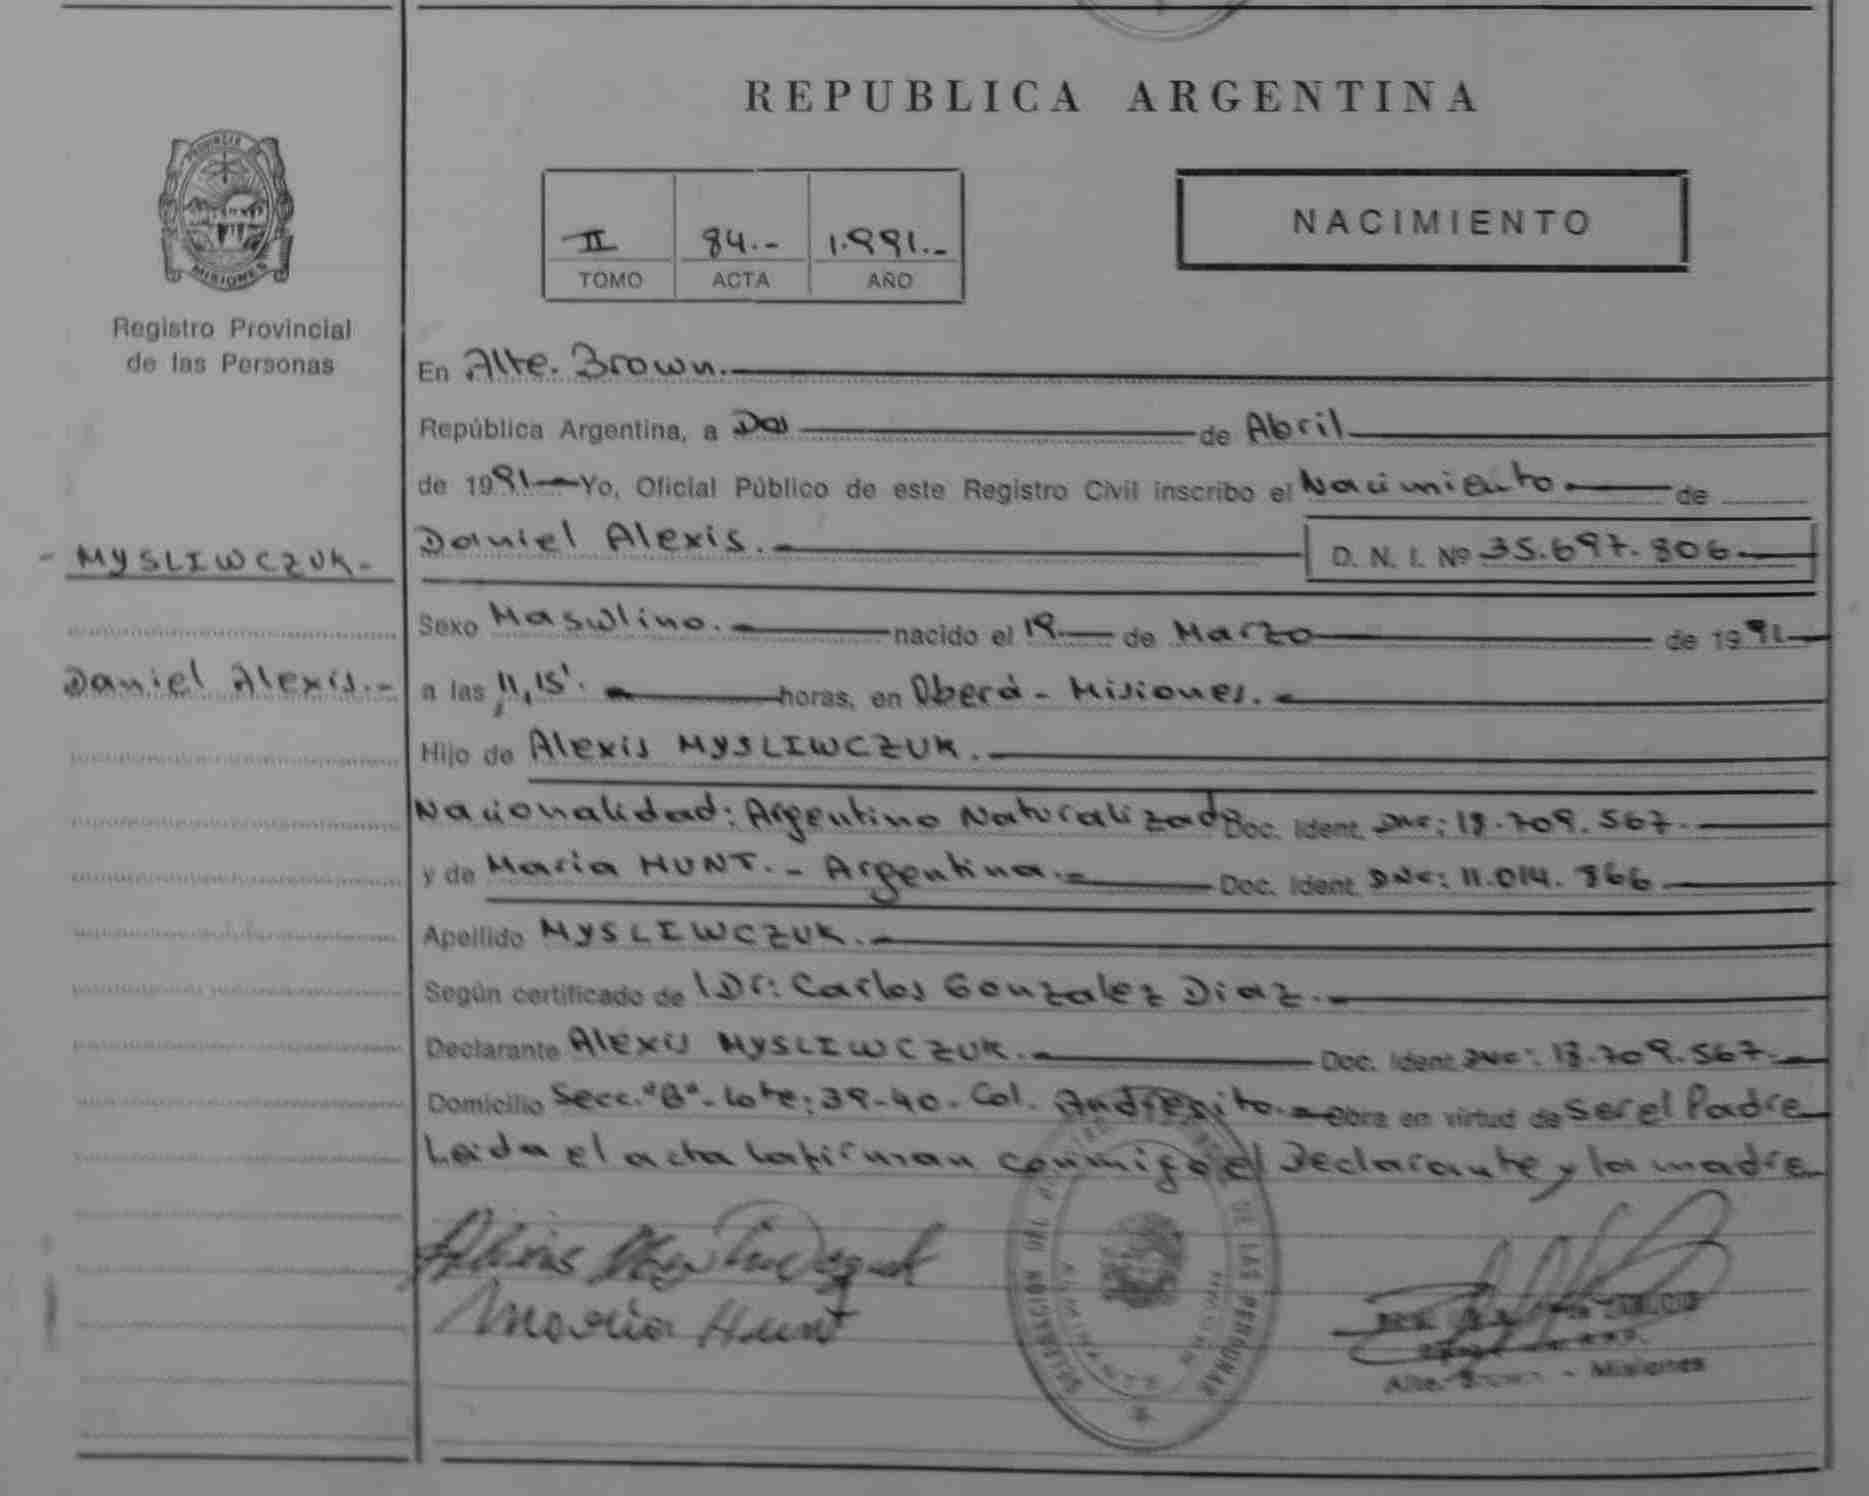 REPUBLICA ARGENTINA
PROVINCIA DE
MISIONES
Registro Provincial
de las Personas
II 84.- 1.991.-
TOMO ACTA AÑO
NACIMIENTO
En Alte. Brown.
República Argentina, a Dos de Abril
de 1991 Yo, Oficial Público de este Registro Civil inscribo el Nacimiento de
- MYSLIWCZUK.-
Daniel Alexis.-
Daniel Alexis. D. N. I. Nº 35.697.806
Sexo Masculino. nacido el 19 de Marzo de 1991
a las 11,15'. horas, en Oberá - Misiones.
Hijo de Alexis MYSLIWCZUK.
Nacionalidad: Argentino Naturalizado Doc. Ident. DNI: 18.709.567.
y de Maria HUNT. - Argentina. Doc. Ident. DNI: 11.014.866
Apellido MYSLIWCZUK.
Según certificado de Dr: Carlos Gonzalez Diaz.
Declarante Alexis MYSLIWCZUK. Doc. Ident. DNI: 18.709.567.
Domicilio Secc. "B" - Lote: 39-40 - Col. Andresito. obra en virtud de ser el Padre
Leida el acta la firman conmigo el Declarante y la madre
Maria Hunt
DE LAS PERSONAS
Alte. Brown - Misiones